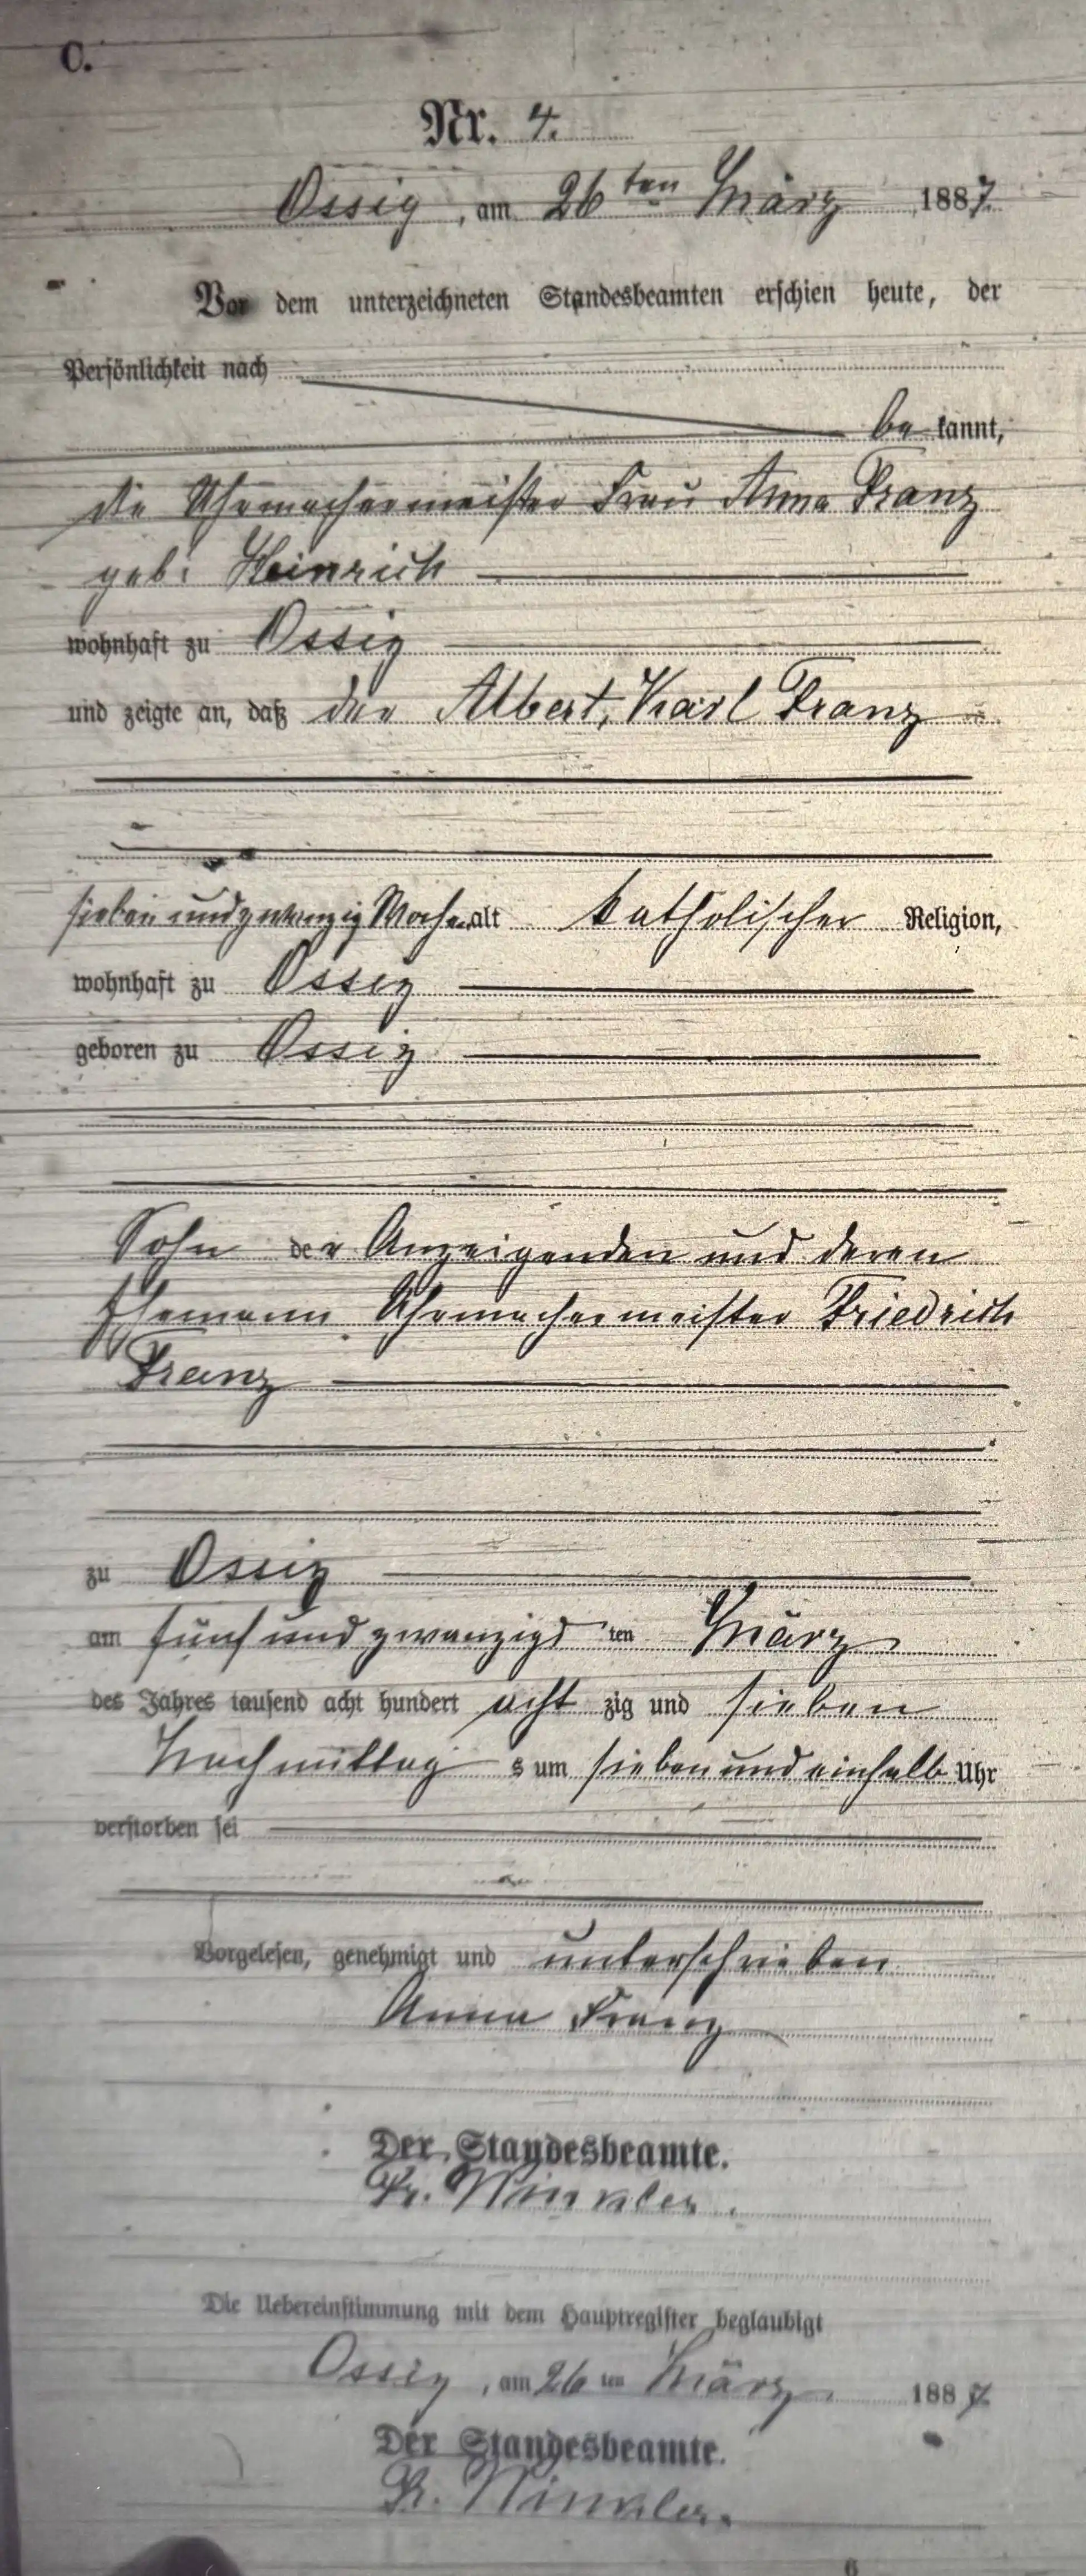 C.
Nr. 4.
Ossig, am 26ten März 1887.
Vor dem unterzeichneten Standesbeamten erschien heute, der
Persönlichkeit nach
be kannt,
die Uhrmachermeister Frau Anna Franz
geb. Heinrich
wohnhaft zu Ossig
und zeigte an, daß der Albert, Karl Franz
sieben und zwanzig Woche alt katholischer Religion,
wohnhaft zu Ossig
geboren zu Ossig
Sohn der Anzeigenden und deren
Ehemann Uhrmachermeister Friedrich
Franz
zu Ossig
am fünf und zwanzigs ten März
des Jahres tausend acht hundert acht zig und sieben
Nachmittag s um sieben und einhalb Uhr
verstorben sei
Vorgelesen, genehmigt und unterschrieben
Anna Franz
Der Standesbeamte.
Fr. Winkler.
Die Uebereinstimmung mit dem Hauptregister beglaubigt
Ossig, am 26 ten März 1887.
Der Standesbeamte.
Fr. Winkler.
6